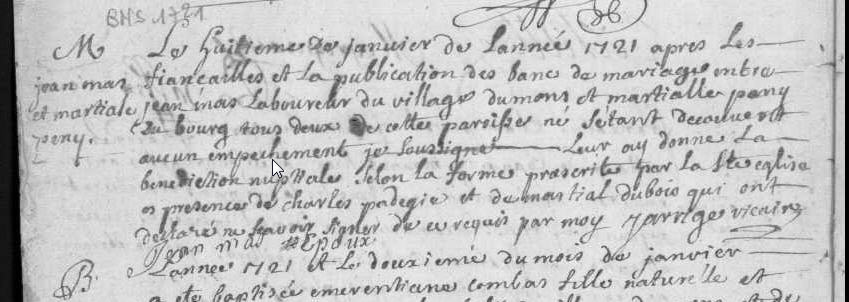 BMS 1721
M
Le huitieme de janvier de Lanneé 1721 apres Les
jean mas
fiancailles et La publication des bans de mariage entre
et martiale
jean mas Laboureur du village du mons et martialle peny
peny.
du bourg tous deux de cette paroisse ne setant decouvert
aucun empechement je soussigne Leur ay donne La
benediction nuptiale selon La forme prescrite par La Ste eglise
en presence de charles padegie et de martial dubois qui ont
declaré ne scavoir signer de ce requis par moy Jarrige vicaire
Jean mas Epoux
B.
Lanneé 1721 et Le douziemé du mois de janvier
a ete baptiseé emerentiane combas fille naturelle et